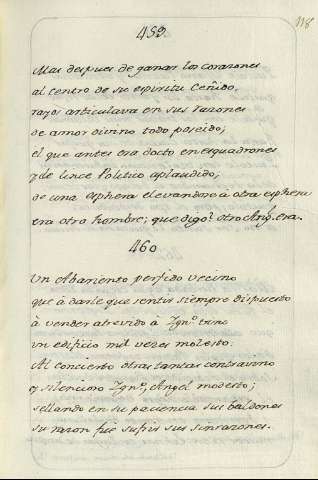 459.
118
Mas despues de ganar los corazones
al centro de su espiritu Ceñido,
rayos articulava en sus razones
de amor divino todo poseido;
el que antes era docto en esquadrones
y de lince Politico aplaudido;
de una esphera elevandose à otra esphera
era otro hombre; que digo? otro Ang.l era.
460
Un Abariento perfido vecino
que à darle que sentir siempre dispuesto
à vender atrevido à Ign.o vino
un edificio mil vezes molesto.
Al concierto otras tantas contravino
y silencioso Ign.o, Angel modesto;
sellando en su paciencia sus baldones
su razon fue sufrir sus sinrazones.